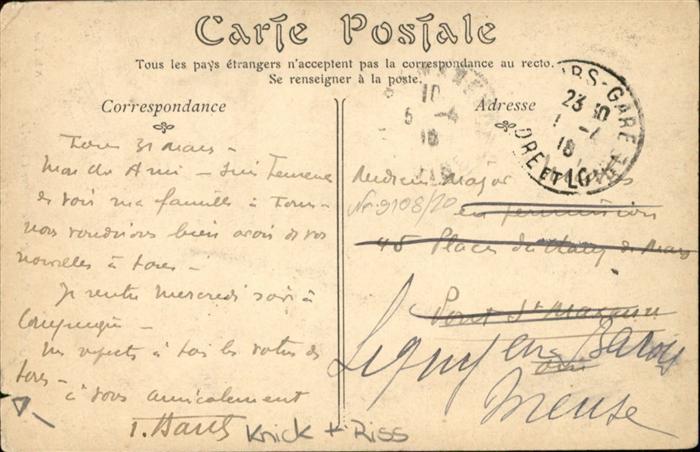 Carte Postale
Tous les pays étrangers n'acceptent pas la correspondance au recto.
Se renseigner à la poste.
Correspondance
Adresse
RS-GARE
23 30
18
RE ET LO
10
5 -4
18
31 mars -
Mon cher Ami -
de voir ma famille à Tours -
nous voudrions bien avoir de vos
nouvelles à tous -
Je rentre mercredi soir à
Compiègne -
Mes respects à tous les votres de
tous -
à vous amicalement
Médecin Major
Nr. 9108/20
en permission
45 Place du Champ de Mars
Pont St Maxence
Ligny en Barrois
Meuse
Knick + Riss